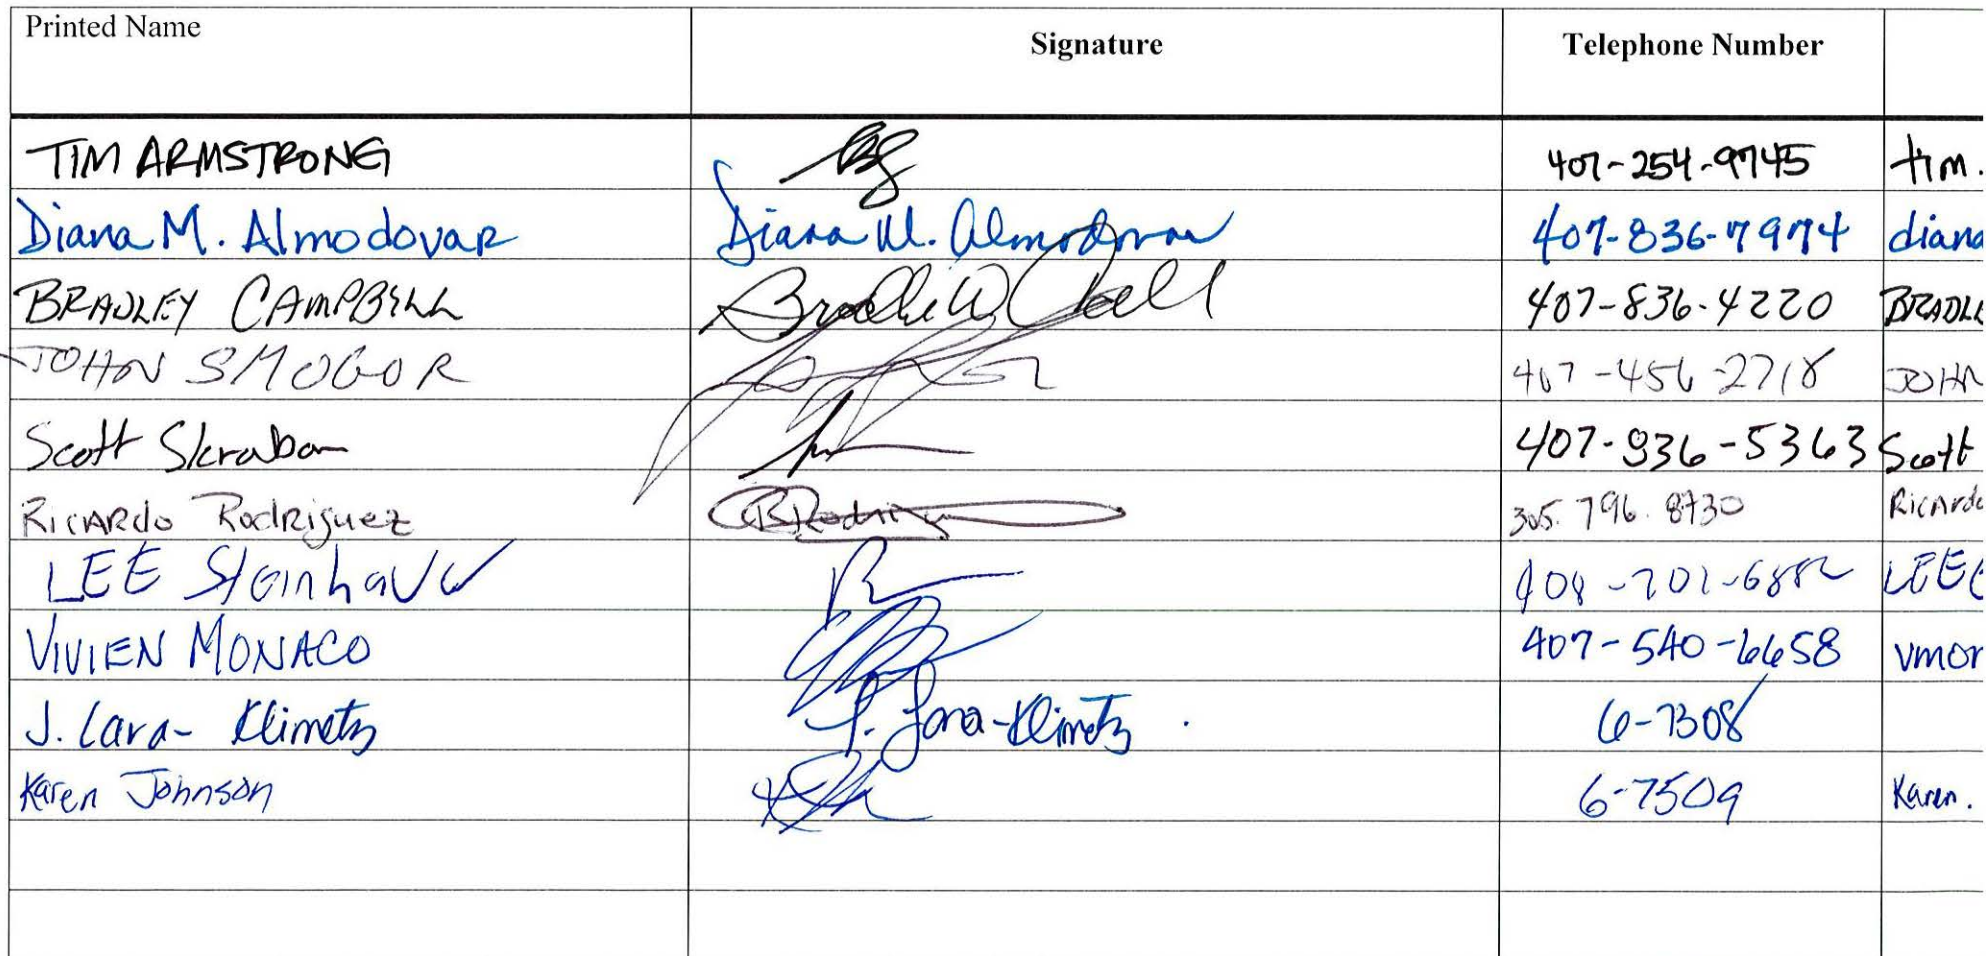 Printed Name Signature Telephone Number
TIM ARMSTRONG 407-254-9745 tim.
Diana M. Almodovar Diana M. Almodovar 407-836-7974 diana
BRADLEY CAMPBELL 407-836-4220 BRADLE
JOHN SMOGOR 407-456-2718 JOHN
Scott Skraban 407-836-5363 Scott
Ricardo Rodriguez RRodrig 305.796.8730 Ricardo
LEE Steinhauer LEE
VIVIEN MONACO 407-540-6658 vmor
J. Lara-Klimetz J. Lara-Klimetz 6-7308
Karen Johnson 6-7509 Karen.